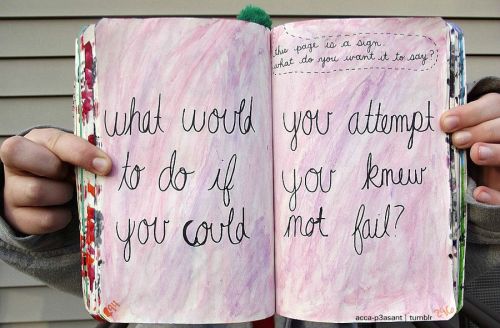 this page is a sign.
what do you want it to say?
what would you attempt
to do if you knew
you could not fail?
acca-p3asant | tumblr